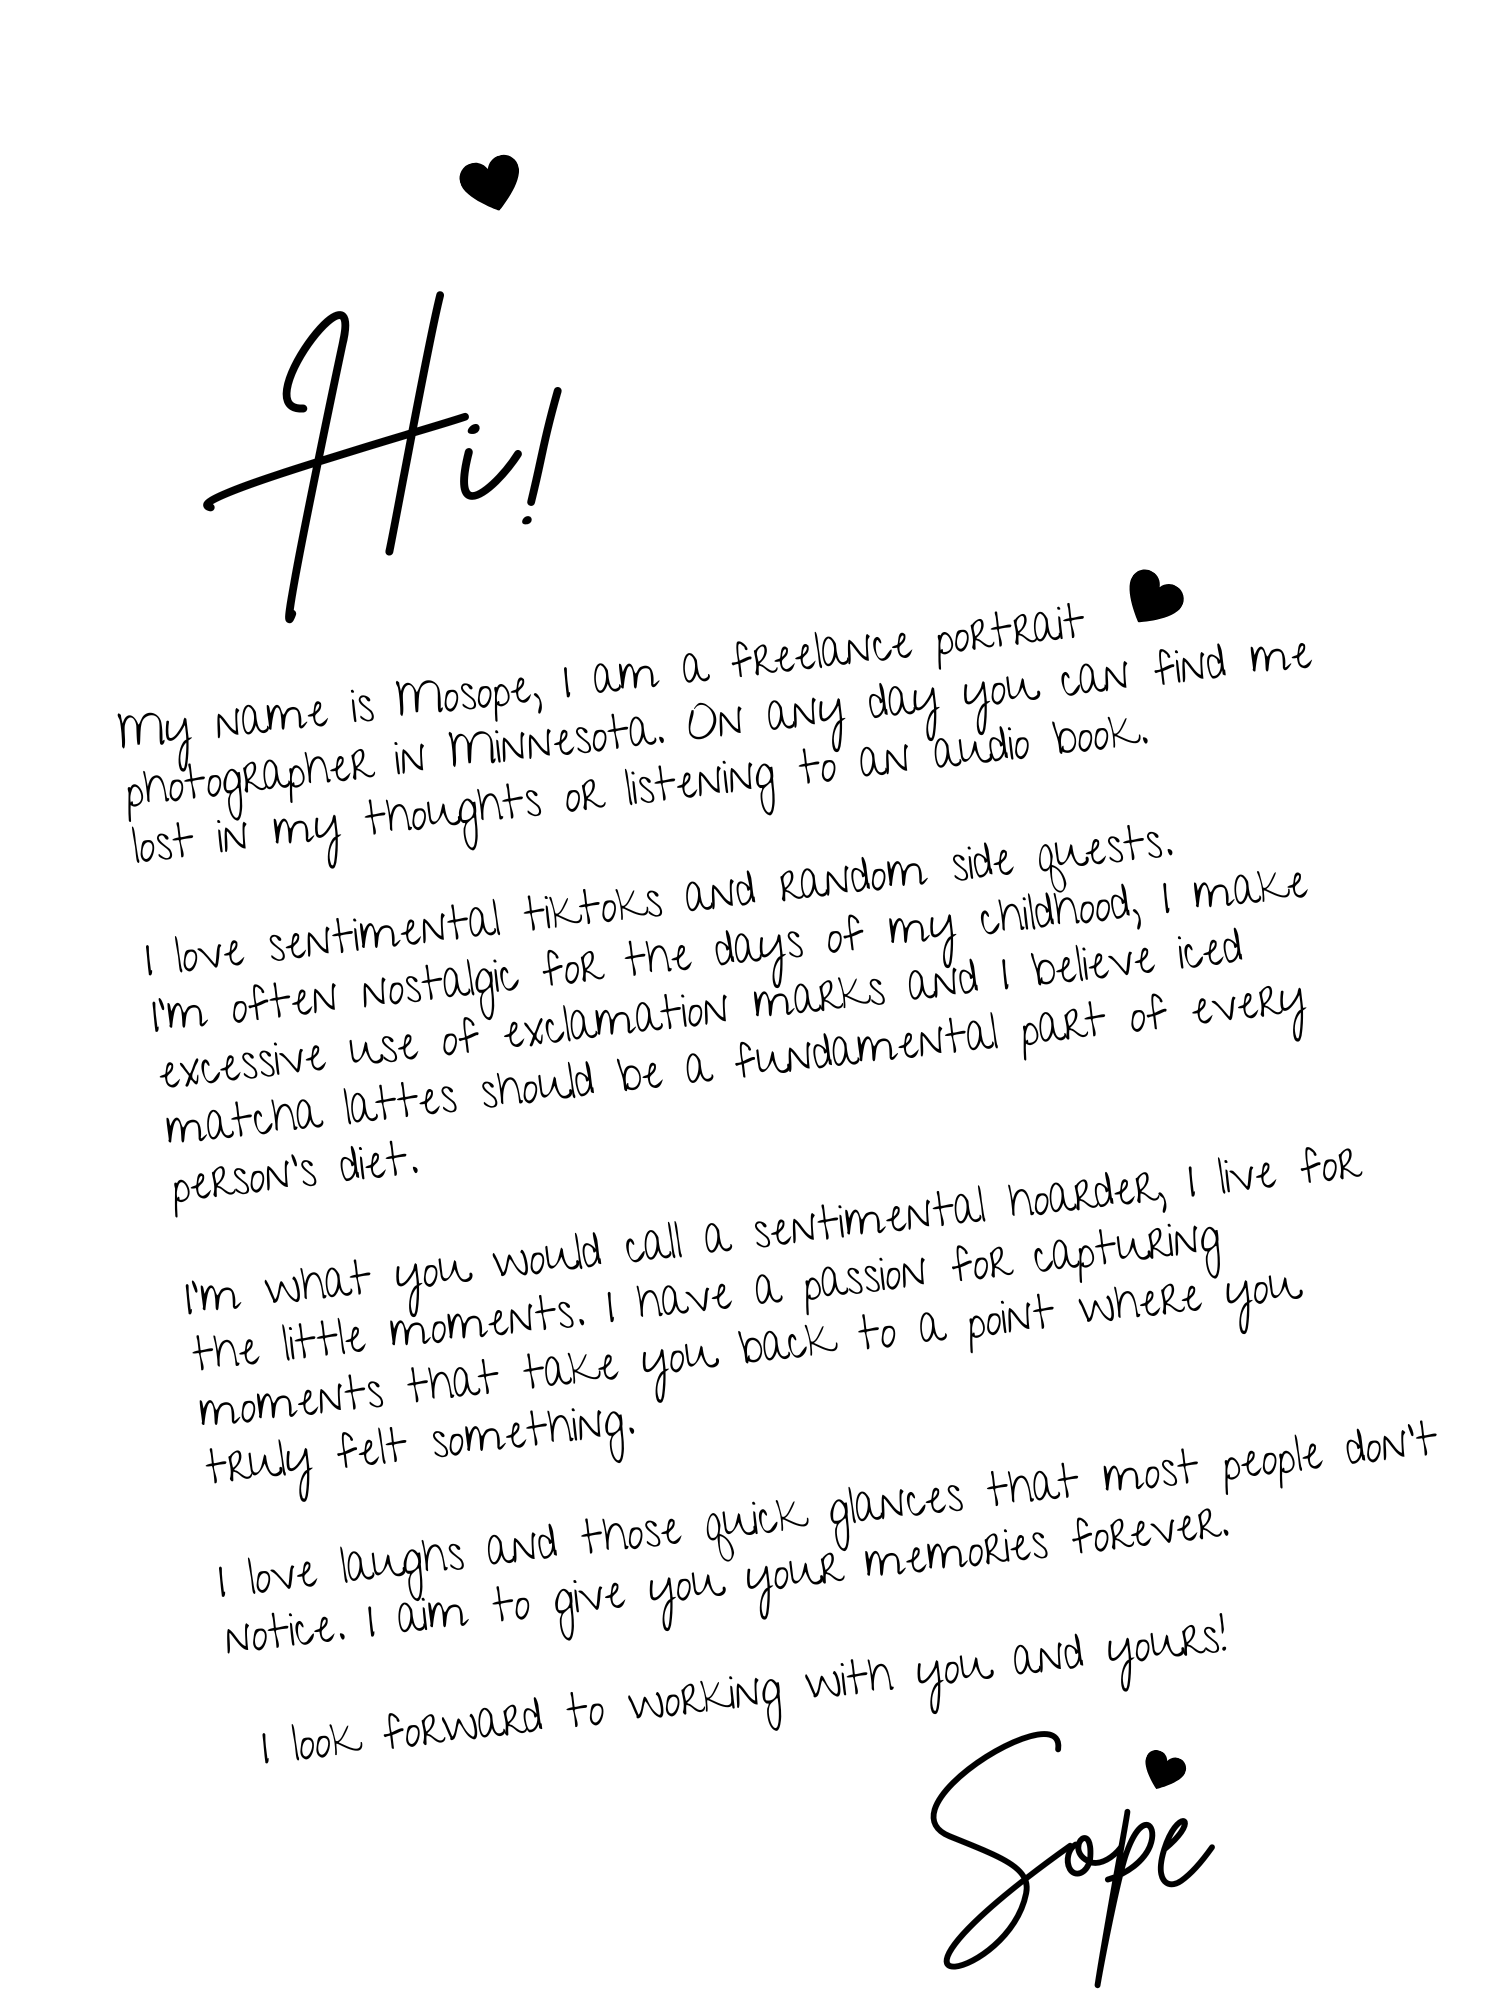 Hi!
My name is Mosope, I am a freelance portrait
photographer in Minnesota. On any day you can find me
lost in my thoughts or listening to an audio book.
I love sentimental tiktoks and random side quests.
I'm often nostalgic for the days of my childhood, I make
excessive use of exclamation marks and I believe iced
matcha lattes should be a fundamental part of every
person's diet.
I'm what you would call a sentimental hoarder, I live for
the little moments. I have a passion for capturing
moments that take you back to a point where you
truly felt something.
I love laughs and those quick glances that most people don't
notice. I aim to give you your memories forever.
I look forward to working with you and yours!
Sope